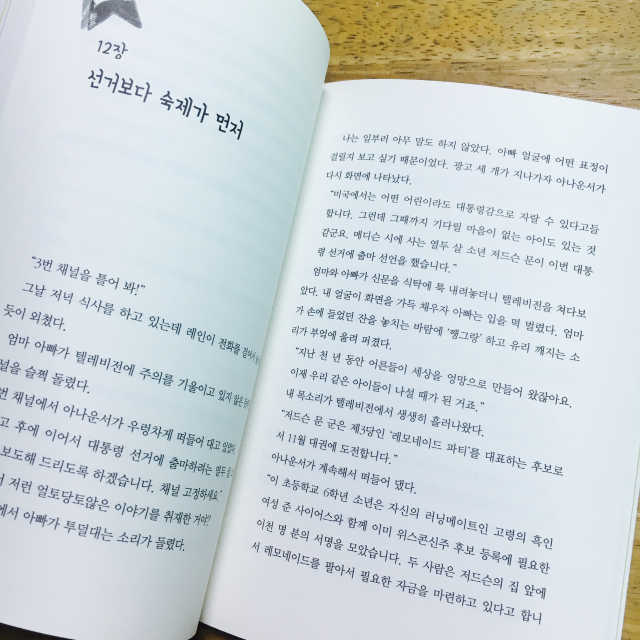 12장
선거보다 숙제가 먼저
"3번 채널을 틀어 봐!"
그날 저녁 식사를 하고 있는데 레인이 전화를
듯이 외쳤다.
엄마 아빠가 텔레비전에 주의를 기울이고 있지 않은
널을 슬쩍 돌렸다.
번 채널에서 아나운서가 우렁차게 떠들어 대고 있었다.
고 후에 이어서 대통령 선거에 출마하려는 열두
보도해 드리도록 하겠습니다. 채널 고정하세요."
서 저런 얼토당토않은 이야기를 취재한 거야?"
에서 아빠가 투덜대는 소리가 들렸다.
나는 일부러 아무 말도 하지 않았다. 아빠 얼굴에 어떤 표정이
걸릴지 보고 싶기 때문이었다. 광고 세 개가 지나가자 아나운서가
다시 화면에 나타났다.
"미국에서는 어떤 어린이라도 대통령감으로 자랄 수 있다고들
합니다. 그런데 그때까지 기다릴 마음이 없는 아이도 있는 것
같군요. 매디슨 시에 사는 열두 살 소년 저드슨 문이 이번 대통
령 선거에 출마 선언을 했습니다."
엄마와 아빠가 신문을 식탁에 툭 내려놓더니 텔레비전을 쳐다보
았다. 내 얼굴이 화면을 가득 채우자 아빠는 입을 떡 벌렸다. 엄마
가 손에 들었던 잔을 놓치는 바람에 '쨍그랑' 하고 유리 깨지는 소
리가 부엌에 울려 퍼졌다.
"지난 천 년 동안 어른들이 세상을 엉망으로 만들어 왔잖아요.
이제 우리 같은 아이들이 나설 때가 된 거죠."
내 목소리가 텔레비전에서 생생히 흘러나왔다.
"저드슨 문 군은 제3당인 '레모네이드 파티'를 대표하는 후보로
서 11월 대권에 도전합니다."
아나운서가 계속해서 떠들어 댔다.
"이 초등학교 6학년 소년은 자신의 러닝메이트인 고령의 흑인
여성 준 사이어스와 함께 이미 위스콘신주 후보 등록에 필요한
이천 명 분의 서명을 모았습니다. 두 사람은 저드슨의 집 앞에
서 레모네이드를 팔아서 필요한 자금을 마련하고 있다고 합니